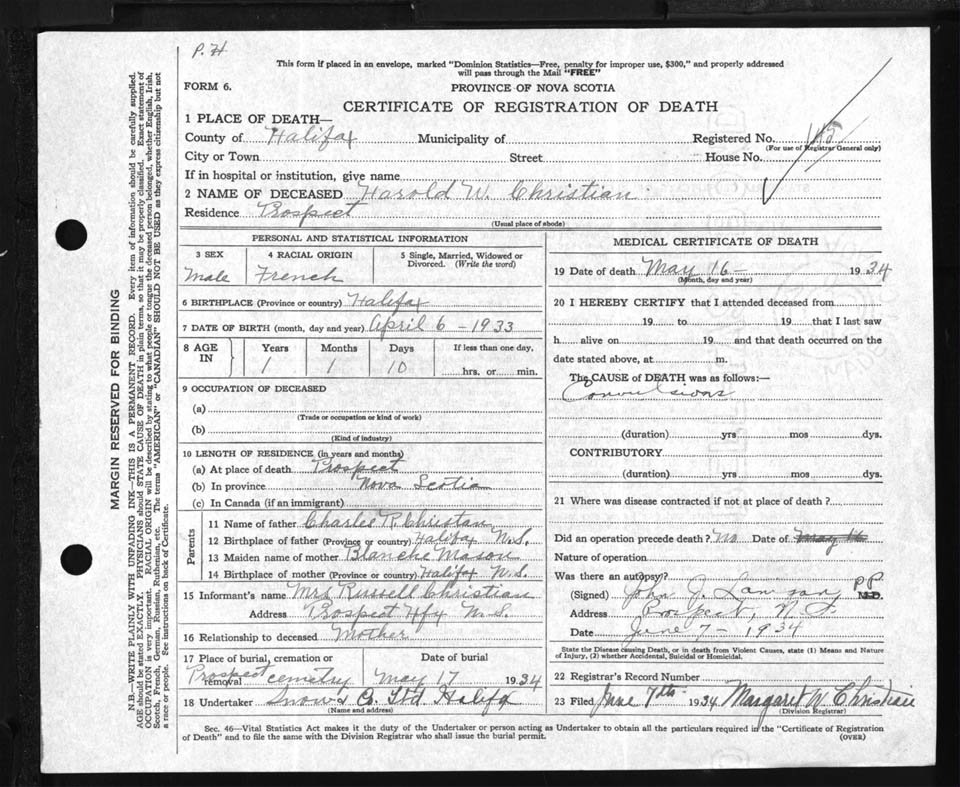 P.H
This form if placed in an envelope, marked "Dominion Statistics—Free, penalty for improper use, $300," and properly addressed
will pass through the Mail "FREE"
FORM 6.
PROVINCE OF NOVA SCOTIA
CERTIFICATE OF REGISTRATION OF DEATH
1 PLACE OF DEATH—
County of Halifax Municipality of Registered No.
(For use of Registrar General only)
City or Town Street House No.
If in hospital or institution, give name
2 NAME OF DECEASED Harold W. Christian
Residence Prospect
(Usual place of abode)
PERSONAL AND STATISTICAL INFORMATION
3 SEX 4 RACIAL ORIGIN 5 Single, Married, Widowed or
Divorced. (Write the word)
Male French
6 BIRTHPLACE (Province or country) Halifax
7 DATE OF BIRTH (month, day and year) April 6 - 1933
8 AGE IN Years Months Days If less than one day,
1 1 10 hrs. or min.
9 OCCUPATION OF DECEASED
(a)
(Trade or occupation or kind of work)
(b)
(Kind of industry)
10 LENGTH OF RESIDENCE (in years and months)
(a) At place of death Prospect
(b) In province Nova Scotia
(c) In Canada (if an immigrant)
Parents
11 Name of father Charles R. Christan
12 Birthplace of father (Province or country) Halifax N.S.
13 Maiden name of mother Blanche Mason
14 Birthplace of mother (Province or country) Halifax N.S.
15 Informant's name Mrs Russell Christian
Address Prospect Hfx N.S.
16 Relationship to deceased Mother
17 Place of burial, cremation or Date of burial
removal Prospect cemetry May 17 1934
18 Undertaker Snow's Co. Ltd Halifx
(Name and address)
MEDICAL CERTIFICATE OF DEATH
19 Date of death May 16 - 1934
(Month, day and year)
20 I HEREBY CERTIFY that I attended deceased from
19 to 19 that I last saw
h alive on 19 and that death occurred on the
date stated above, at m.
The CAUSE of DEATH was as follows:—
Convulsions
(duration) yrs mos dys.
CONTRIBUTORY
(duration) yrs. mos. dys.
21 Where was disease contracted if not at place of death?
Did an operation precede death? No Date of May 16
Nature of operation
Was there an autopsy?
(Signed) John J. P.P. M.D.
Address Prospect, N.S.
Date June 7 - 1934
State the Disease causing Death, or in death from Violent Causes, state (1) Means and Nature
of Injury, (2) whether Accidental, Suicidal or Homicidal.
22 Registrar's Record Number
23 Filed June 7th 1934 Margaret W. Christian
(Division Registrar)
Sec. 46—Vital Statistics Act makes it the duty of the Undertaker or person acting as Undertaker to obtain all the particulars required in the "Certificate of Registration
of Death" and to file the same with the Division Registrar who shall issue the burial permit.
(OVER)
MARGIN RESERVED FOR BINDING
N.B.—WRITE PLAINLY WITH UNFADING INK—THIS IS A PERMANENT RECORD. Every item of information should be carefully supplied.
AGE should be stated EXACTLY. PHYSICIANS should STATE CAUSE OF DEATH in plain terms, so that it may be properly classified. Exact statement of
OCCUPATION is very important. RACIAL ORIGIN will be described by stating to what people or tongue the deceased person belonged, whether English, Irish,
Scotch, French, German, Russian, Ruthenian, etc. The terms "AMERICAN" or "CANADIAN" SHOULD NOT BE USED as they express citizenship but not
a race or people. See instructions on back of Certificate.